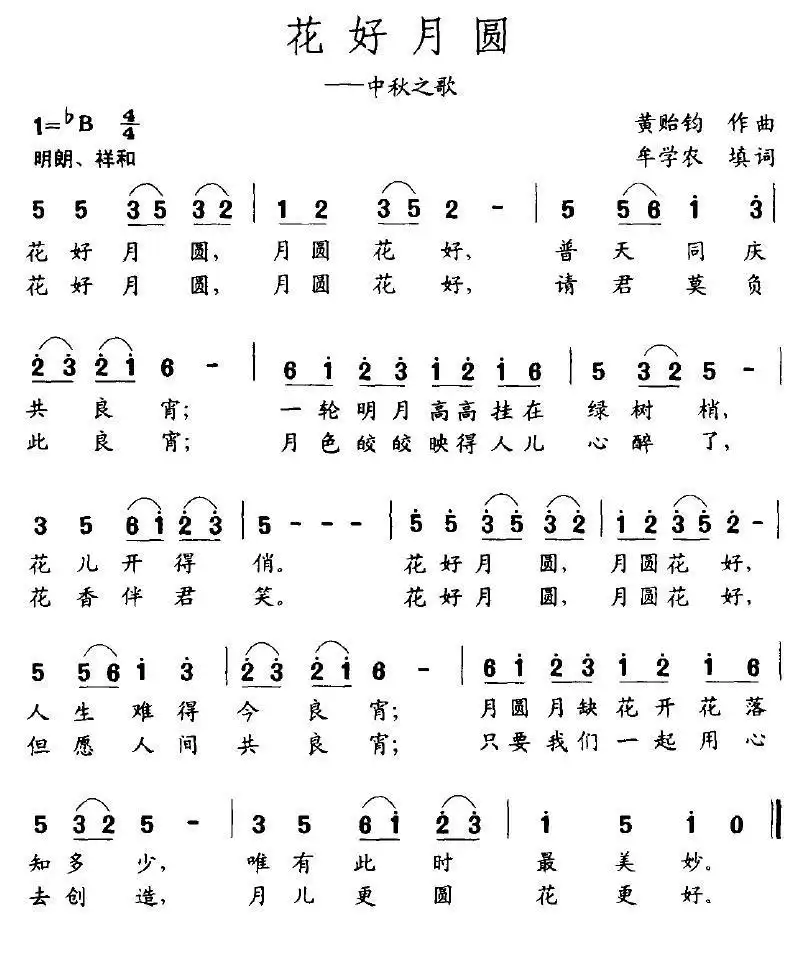 花好月圆
——中秋之歌
1=♭B 4/4 黄贻钧 作曲
明朗、祥和 牟学农 填词
5 5 3 5 3 2 | 1 2 3 5 2 - | 5 5 6 i 3̇ |
花好月圆,月圆花好,普天同庆
花好月圆,月圆花好,请君莫负
2̇ 3̇ 2̇ i 6 - | 6 i 2̇ 3̇ i 2̇ i 6 | 5 3 2 5 - |
共良宵;一轮明月高高挂在绿树梢,
此良宵;月色皎皎映得人儿心醉了,
3 5 6 i 2̇ 3̇ | 5 - - - | 5̇ 5̇ 3̇ 5̇ 3̇ 2̇ | i 2̇ 3̇ 5̇ 2̇ - |
花儿开得俏。花好月圆,月圆花好,
花香伴君笑。花好月圆,月圆花好,
5 5 6 i 3̇ | 2̇ 3̇ 2̇ i 6 - | 6 i 2̇ 3̇ i 2̇ i 6 |
人生难得今良宵;月圆月缺花开花落
但愿人间共良宵;只要我们一起用心
5 3 2 5 - | 3 5 6 i 2̇ 3̇ | i 5 i 0 ‖
知多少,唯有此时最美妙。
去创造,月儿更圆花更好。